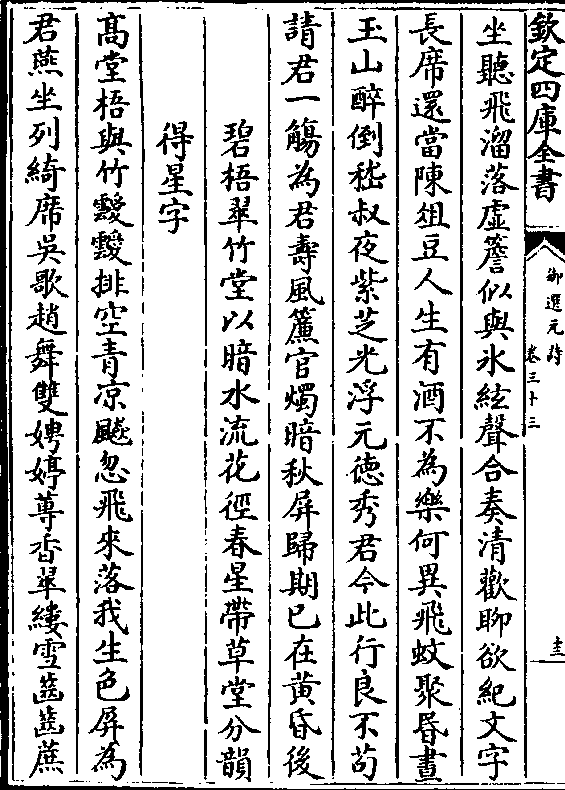 欽定四庫全書
御選元詩
卷三十三
坐聽飛溜落虛簷似與氷絃聲合奏清歡聊欲紀文字
長席還當陳俎豆人生有酒不為樂何異飛蚊聚昬晝
玉山醉倒嵇叔夜紫芝光浮元徳秀君今此行良不苟
請君一觴為君壽風簾官燭暗秋屏歸期已在黄昏後
碧梧翠竹堂以暗水流花徑春星帶草堂分韻
得星字
髙堂梧與竹靉靉排空青凉飈忽飛來落我生色屏為
君燕坐列綺席吳歌趙舞雙娉婷蓴香翠縷雪齒齒蔗